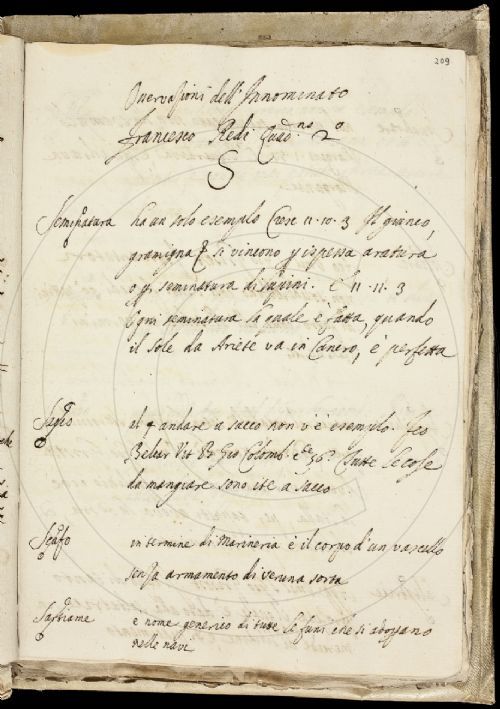 209
Osservazioni dell'Innominato
Francesco Redi Quad.no 2o
S
Seminatura ha un solo esempio Cresc 11. 10. 3 Il giunco,
gramigna si vincono p ispessa aratura
o p. seminatura di lupini. e 11. 11. 3
Ogni seminatura la quale è fatta, quando
il Sole da Ariete va in Cancro, è perfetta
Sacco al andare a sacco non v'è esempio. Feo
Belcar Vit Bo Gio Colomb. 36. Tutte le cose
da mangiare sono ite a sacco
Scafo in termine di Marineria è il corpo d'un vascello
senza armamento di veruna sorta
Sartiame è nome generico di tutte le funi che si adoprano
nelle navi